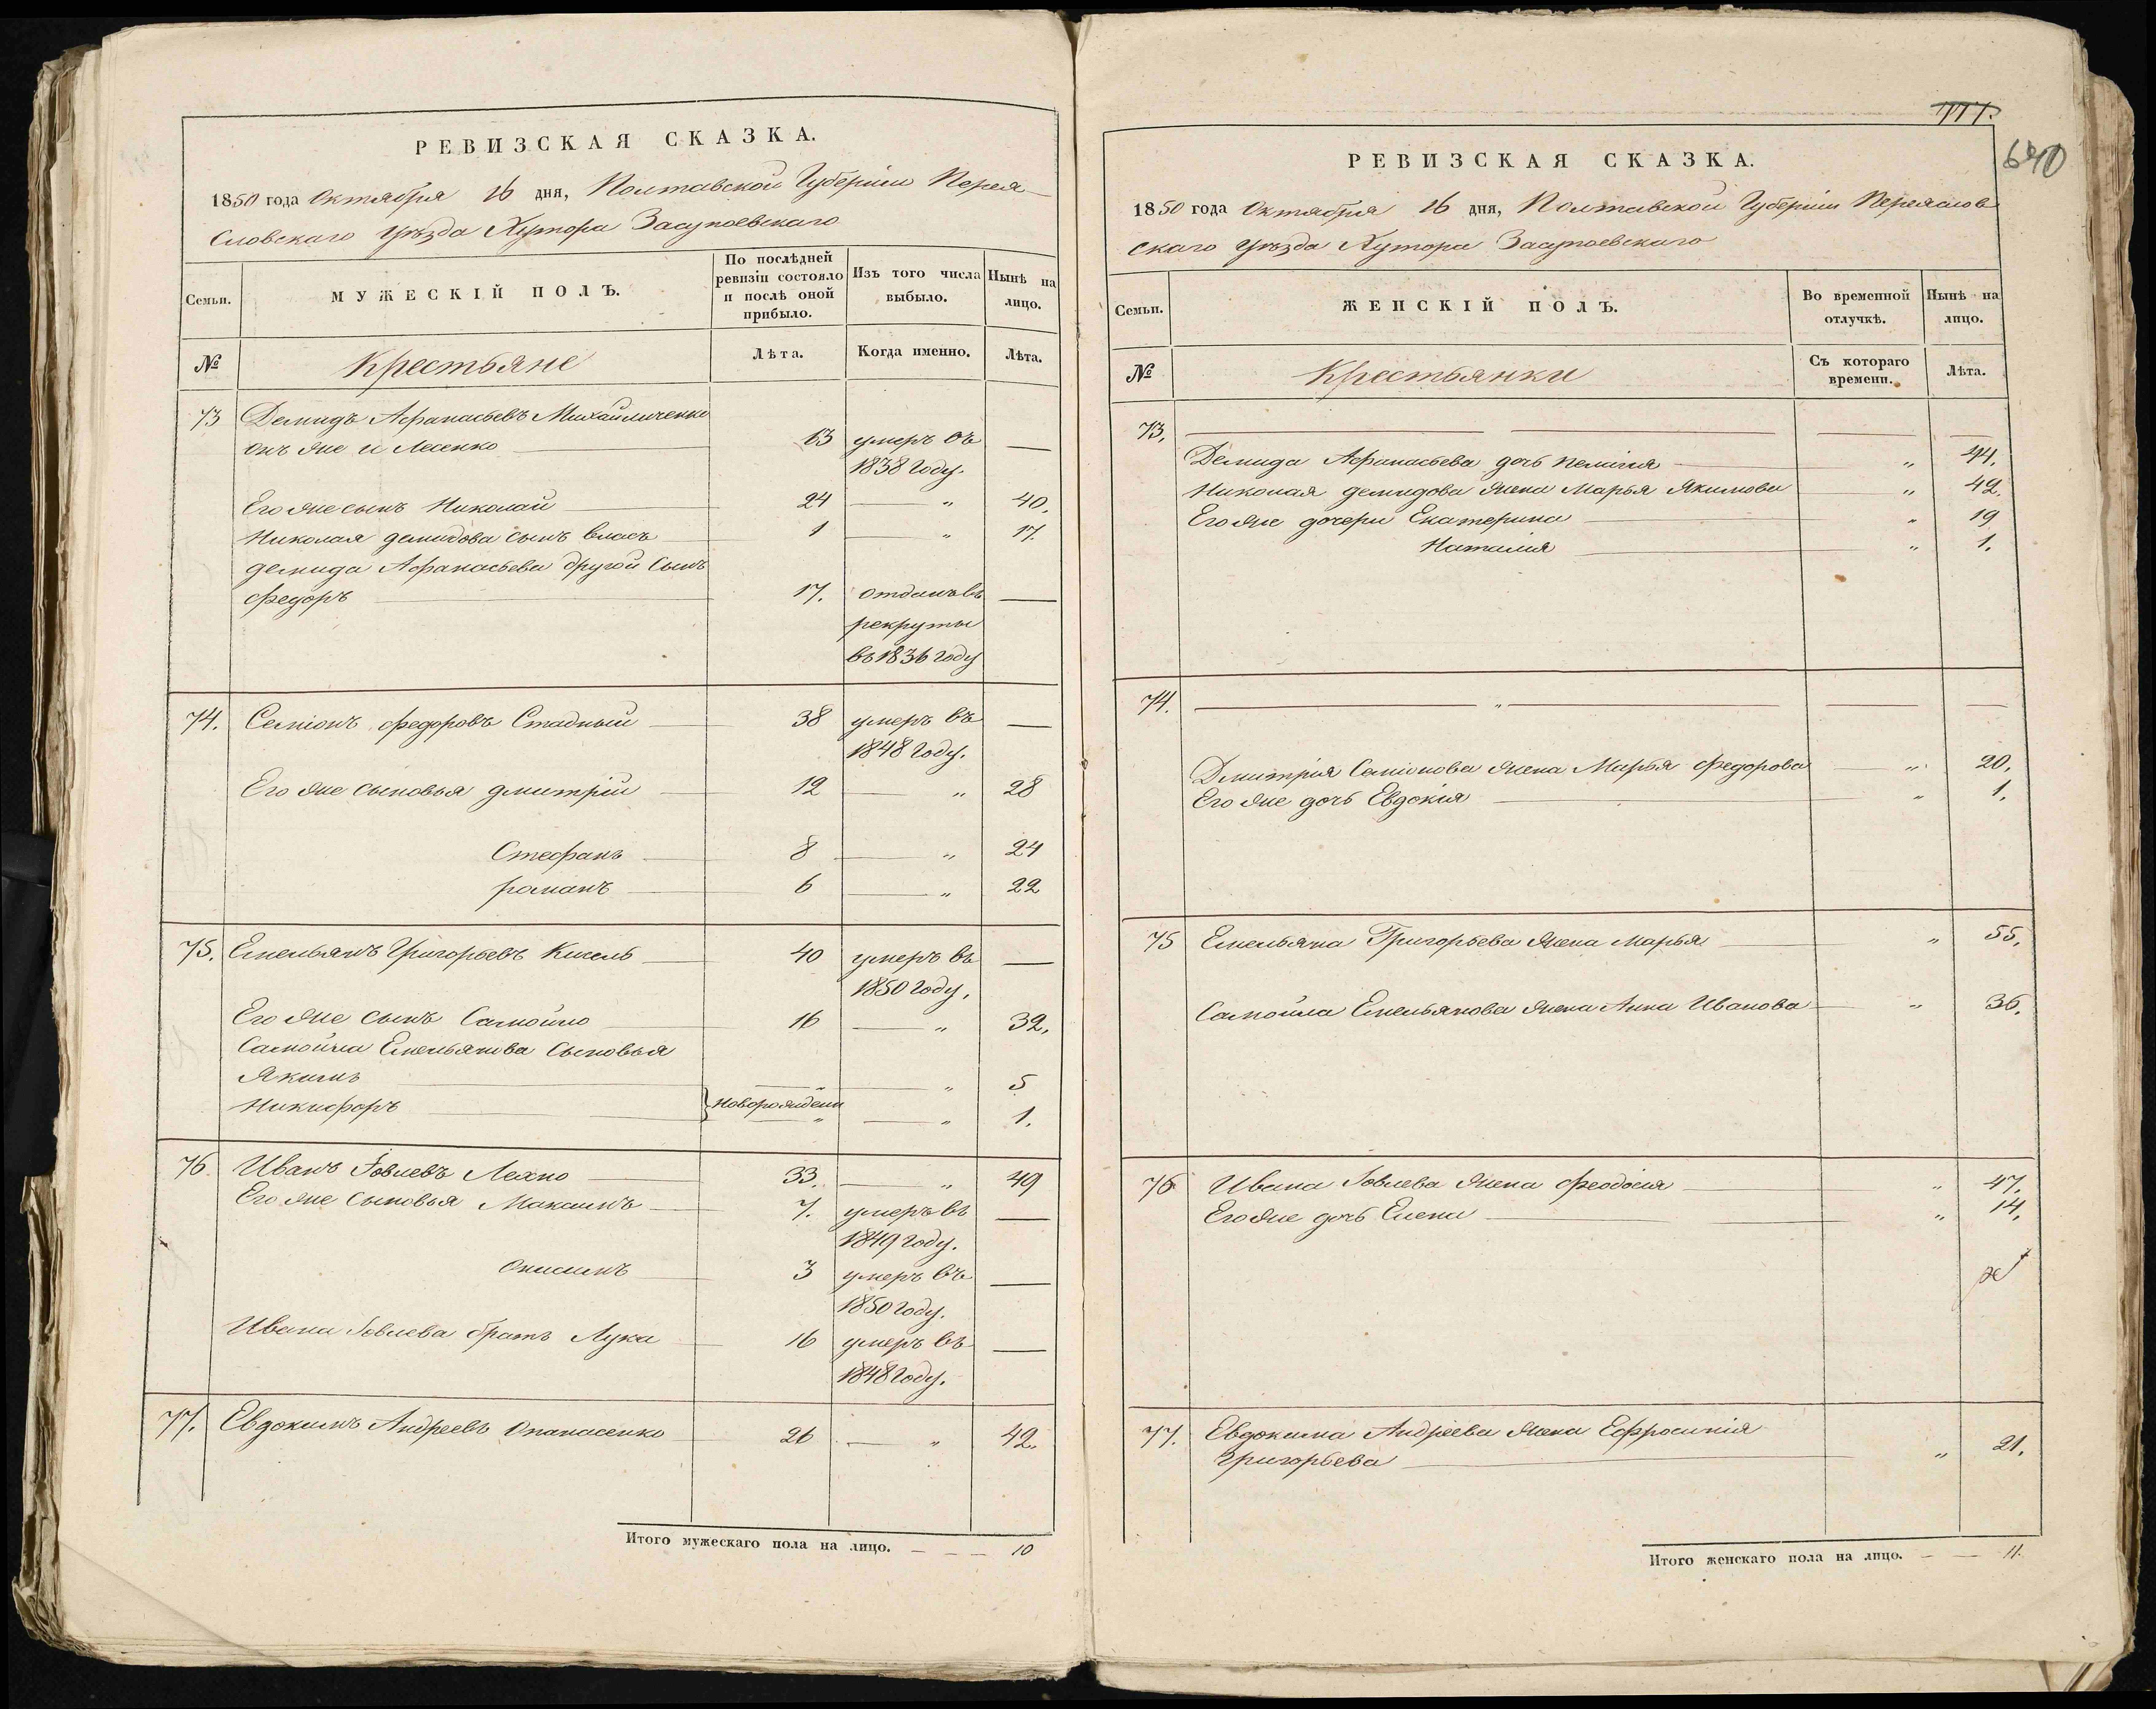 РЕВИЗСКАЯ СКАЗКА.
1850 года Октября 16 дня, Полтавской Губерніи Перея-
словскаго уѣзда Хутора Засупоевскаго
Семьи.
МУЖЕСКІЙ ПОЛЪ.
По послѣдней ревизіи состояло и послѣ оной прибыло.
Изъ того числа выбыло.
Нынѣ на лицо.
№
Крестьяне
Лѣта.
Когда именно.
Лѣта.
73 Демидъ Афанасьевъ Михайличенко
онъ же и Лесенко — 63 умеръ въ —
1838 году.
Его же сынъ Николай — 24 — " 40.
Николая демидова сынъ власъ — 1 — " 17.
демида Афанасьева другой сынъ
федоръ — 17. отданъ въ —
рекруты
въ 1836 году
74. Семіонъ федоровъ Стадный — 38 умеръ въ —
1848 году.
Его же сыновья дмитрій — 12 — " 28
Стефанъ — 8 — " 24
романъ — 6 — " 22
75. Емельянъ Григорьевъ Кисель — 40 умеръ въ —
1850 году.
Его же сынъ Самойло — 16 — " 32.
Самойла Емельянова сыновья
Якимъ — " — " 5
Никифоръ — } Новорождены " — " 1.
76. Иванъ Іовлевъ Лехно — 33. — " 49
Его же сыновья Максимъ — 7. умеръ въ —
1849 году.
Онисимъ — 3 умеръ въ —
1850 году.
Ивана Іовлева братъ Лука — 16 умеръ въ —
1848 году.
77. Евдокимъ Андреевъ Опанасенко — 26 — " 42.
Итого мужескаго пола на лицо. — — — 10
777.
640
РЕВИЗСКАЯ СКАЗКА.
1850 года Октября 16 дня, Полтавской Губерніи Переяслов
скаго уѣзда Хутора Засупоевскаго
Семьи.
ЖЕНСКІЙ ПОЛЪ.
Во временной отлучкѣ.
Нынѣ на лицо.
№
Крестьянки
Съ котораго времени.
Лѣта.
73. — — — —
Демида Афанасьева дочь Пелагия — " 44.
Николая демидова жена Марья Якимова — " 42.
Его же дочери Екатерина — " 19
Наталия — " 1.
74. — " — — —
Дмитрія Семіонова жена Марья федорова — " 20.
Его же дочь Евдокия — " 1.
75 Емельяна Григорьева жена Марья — " 55.
Самойла Емельянова жена Анна Иванова — " 36.
76 Ивана Іовлева жена феодосия — " 47.
Его же дочь Елена — " 14.
77. Евдокима Андреева жена Ефросинія
Григорьева — " 21.
Итого женскаго пола на лицо. — — 11.